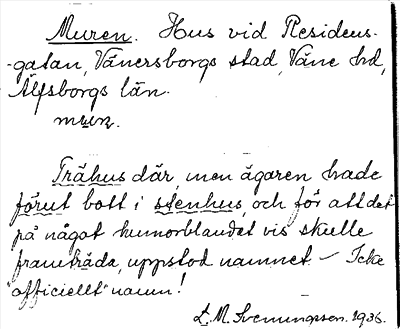 Muren. Hus vid Residens-
-gatan, Vänersborgs stad, Väne hd,
Älfsborgs län.
muræn.
Trähus där, men ägaren hade
förut bott i stenhus, och för att det
på något humorblandat vis skulle
framträda, uppstod namnet - Icke
"officiellt" namn!
L. M. Svenungsson. 1936.